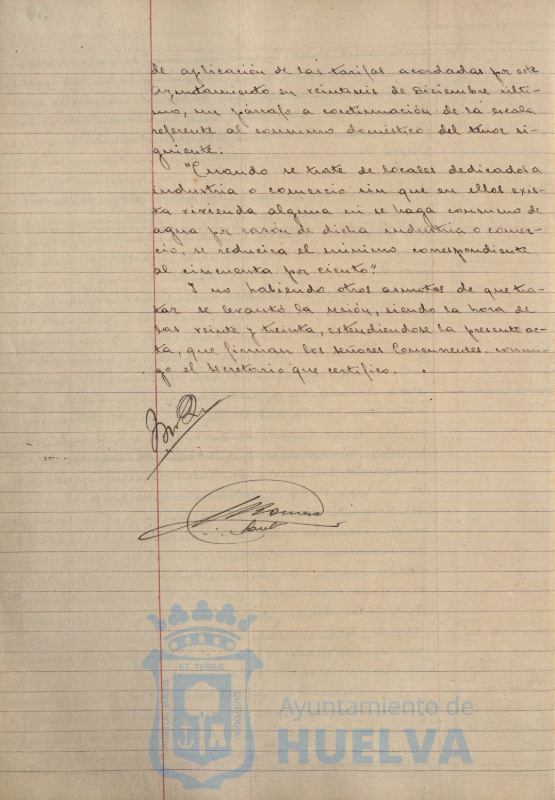 de aplicación de las tarifas acordadas por este
Ayuntamiento en veintiseis de Diciembre últi-
mo, un párrafo a continuación de la escala
referente al consumo doméstico del tenor si-
guiente:
"Cuando se trate de locales dedicados a
industria o comercio sin que en ellos exis-
ta vivienda alguna ni se haga consumo de
agua por razón de dicha industria o comer-
cio, se reducirá el mínimo correspondiente
al cincuenta por ciento".
Y no habiendo otros asuntos de que tra-
tar se levantó la sesión, siendo la hora de
las veinte y treinta, extendiendose la presente ac-
ta, que firman los señores Concurrentes, conmi-
go el Secretario que certifico.
ET TERRA
Ayuntamiento de
HUELVA